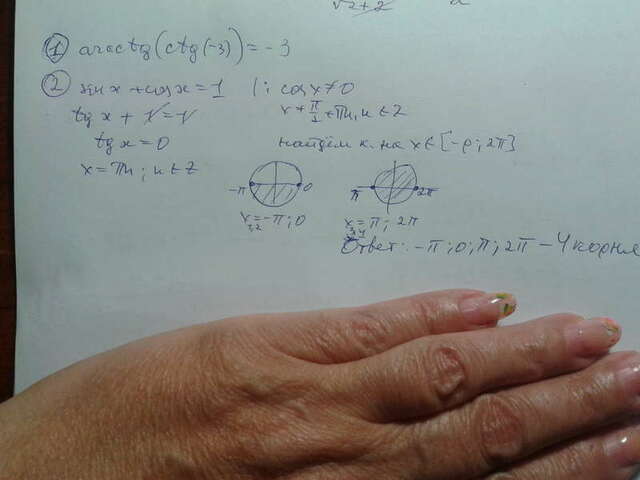 √2+2
① arcctg(ctg(-3)) = -3
② sin x + cos x = 1 |: cos x ≠ 0
tg x + 1 = 1
x ≠ π/2 + πn, n ∈ Z
tg x = 0
найдём к. на x ∈ [-p; 2π]
x = πn; n ∈ Z
-π 0 π 2π
x = -π; 0
1,2
x = π; 2π
3,4
Ответ: -π; 0; π; 2π - 4 корня